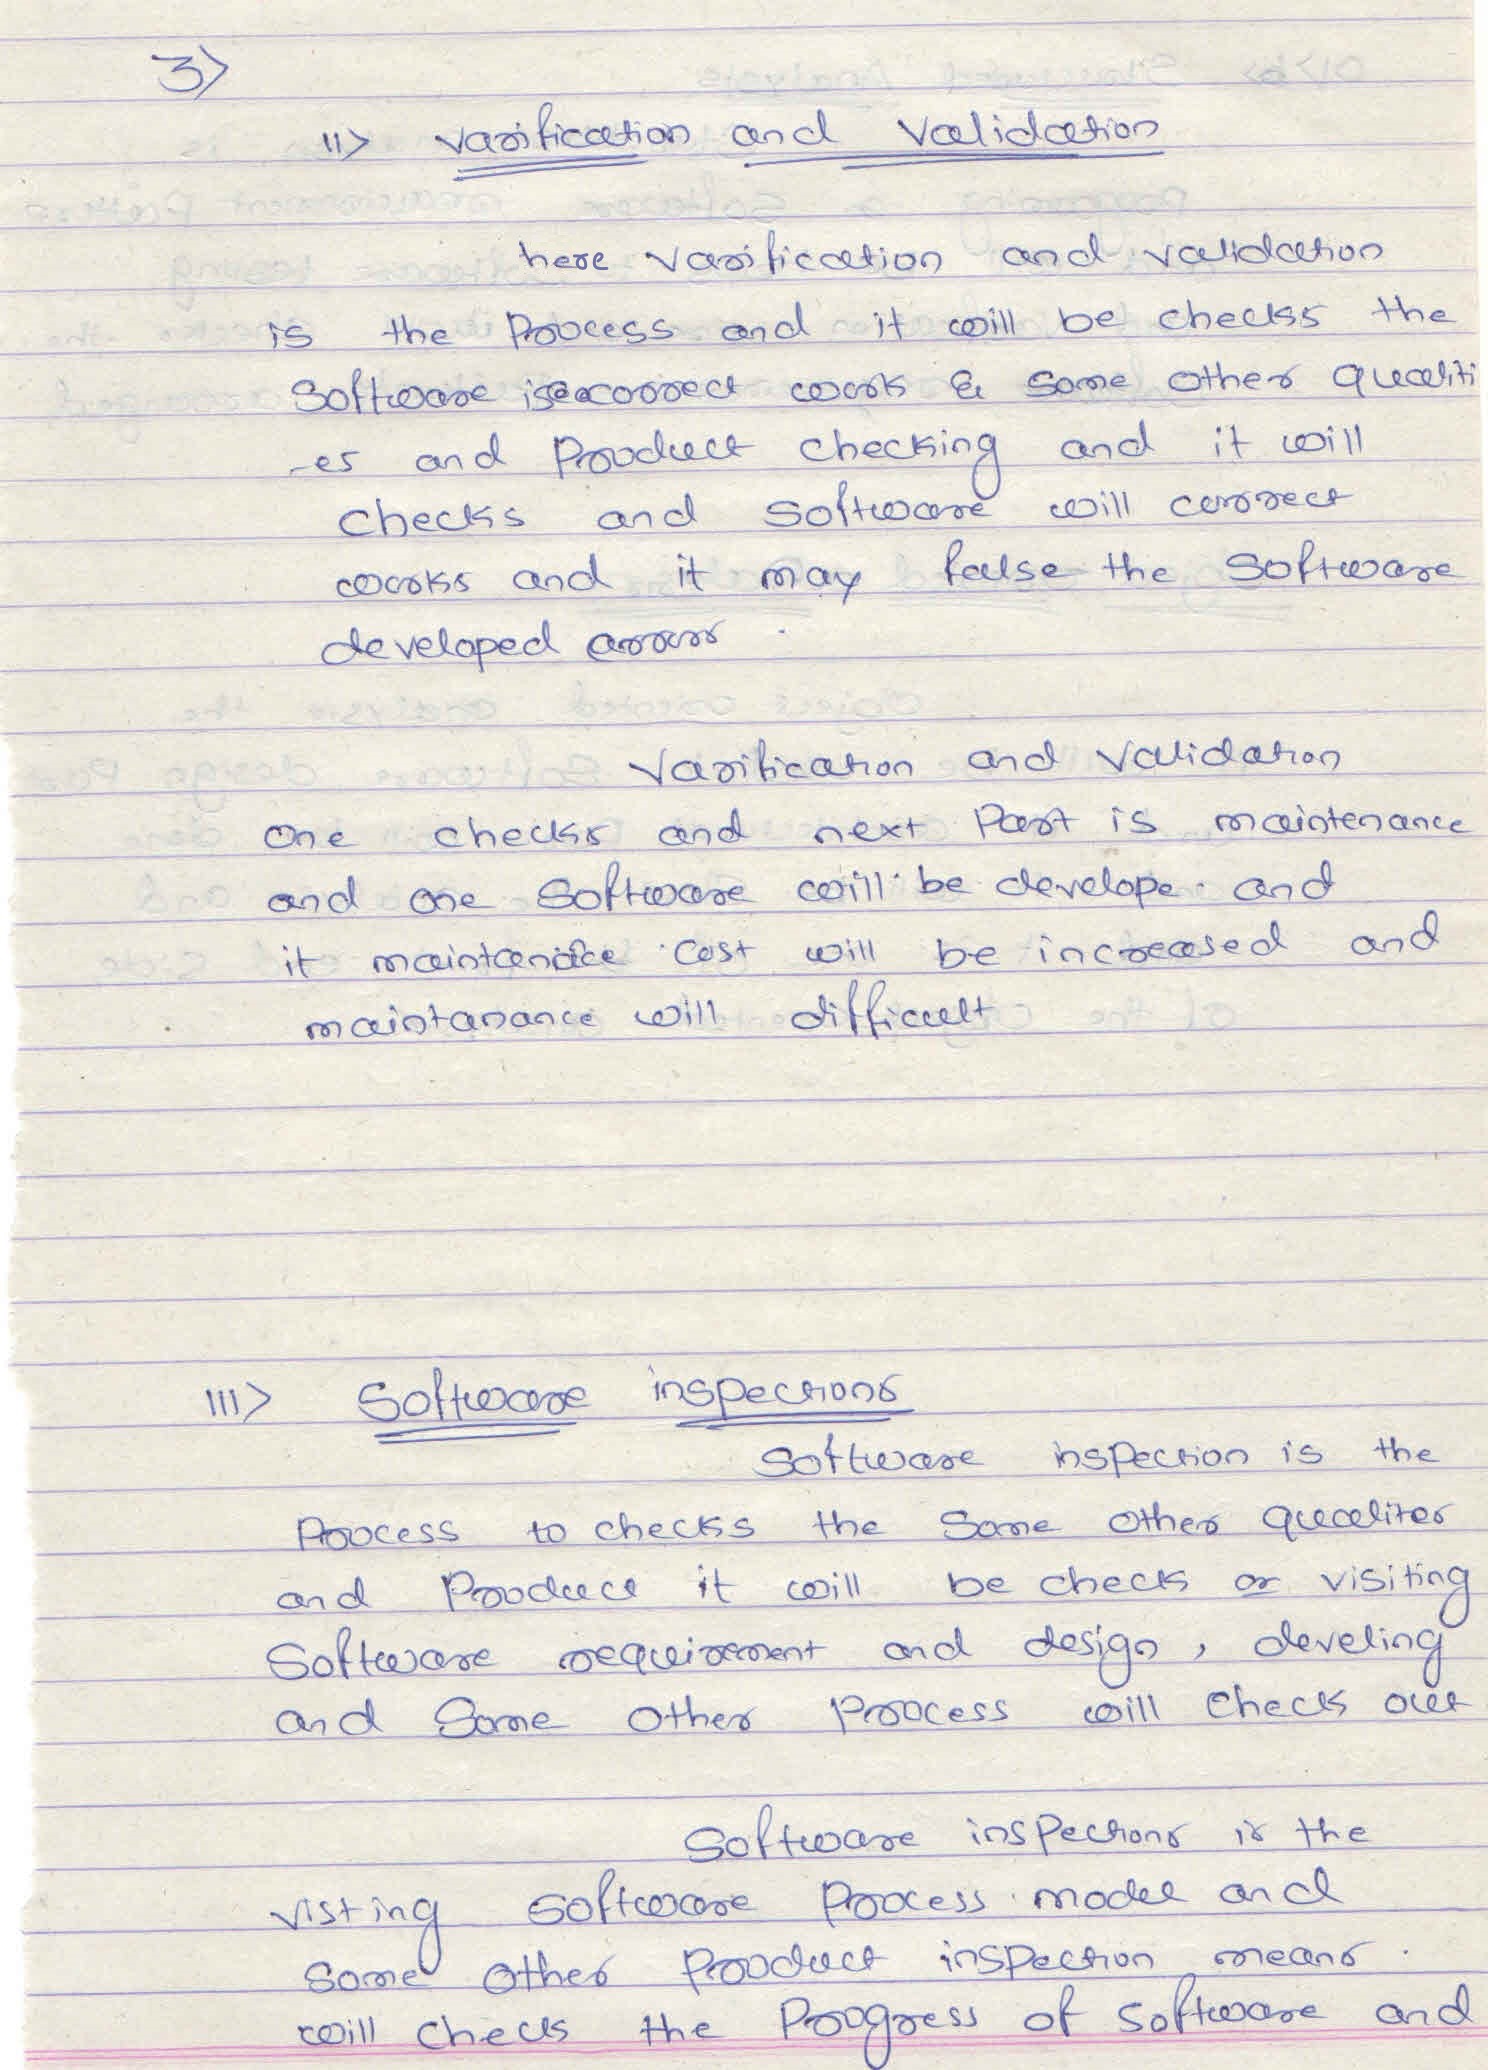 3)
11) Varification and Validation
here varification and validation
is the Process and it will be checks the
Software is correct work & some other qualiti
-es and Product checking and it will
checks and software will correct
works and it may false the Software
developed arror
Varification and validation
one checks and next Part is maintenance
and one software will be develope and
it maintanance cost will be increased and
maintanance will difficult
111) Software inspections
Software inspection is the
Process to checks the some other qualites
and Product it will be check or visiting
Software requirement and design, develing
and some other process will check out
Software inspections is the
visting software Process model and
some other Product inspection means
will check the Progress of software and